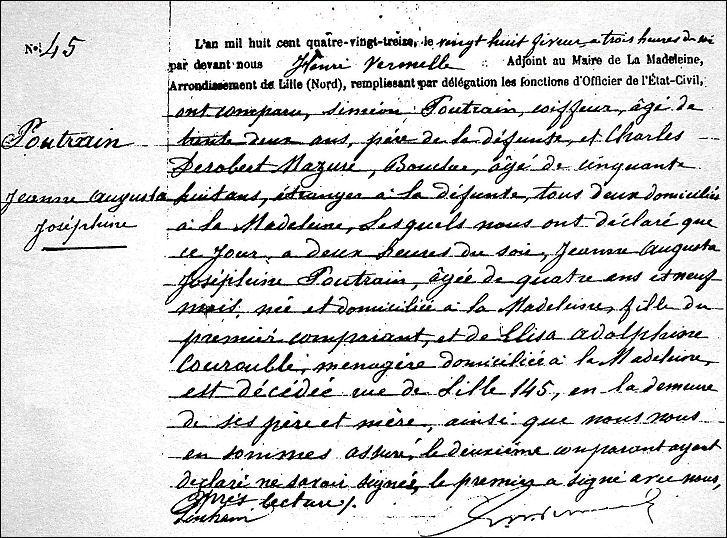 N° 45
Poutrain
Jeanne Augusta
Joséphine
L'an mil huit cent quatre-vingt-treize, le vingt huit février à trois heures du soir
par devant nous Henri Vermelle Adjoint au Maire de La Madeleine,
Arrondissement de Lille (Nord), remplissant par délégation les fonctions d'Officier de l'État-Civil,
ont comparu, Siméon Poutrain, coiffeur, âgé de
trente deux ans, père de la défunte, et Charles
Derobert Mazure, Boucher, âgé de cinquante
huit ans, étranger à la défunte, tous deux domiciliés
à la Madeleine, Lesquels nous ont déclaré que
ce jour à deux heures du soir, Jeanne Augusta
Joséphine Poutrain, âgée de quatre ans et neuf
mois, née et domiciliée à la Madeleine, fille du
premier comparant, et de Elisa Adolphine
Courouble, menagère domiciliée à la Madeleine,
est décédée rue de Lille 145, en la demeure
de ses père et mère, ainsi que nous nous
en sommes assuré, le deuxième comparant ayant
déclaré ne savoir signer, le premier a signé avec nous,
après lecture.